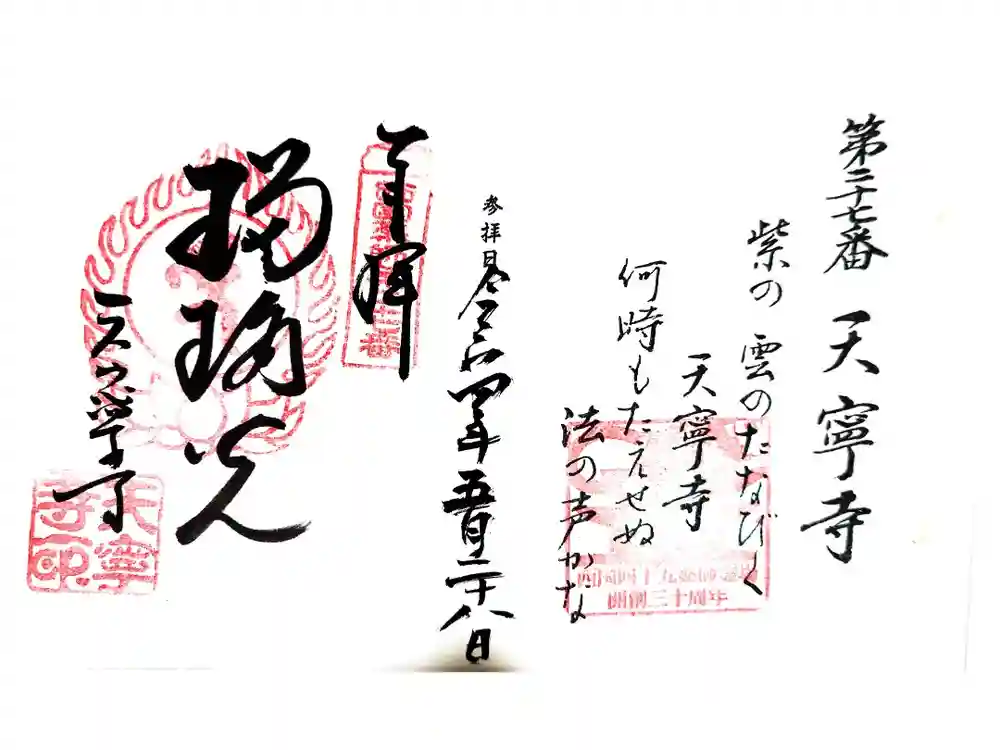 第二十七番 天寧寺
紫の雲のたなびく
天寧寺
何時もたえせぬ
法の声かな
参拝日
令和四年五月二十八日
奉拝
瑠璃光
天寧寺
天寧
寺印
西国四十九薬師霊場
開創三十周年